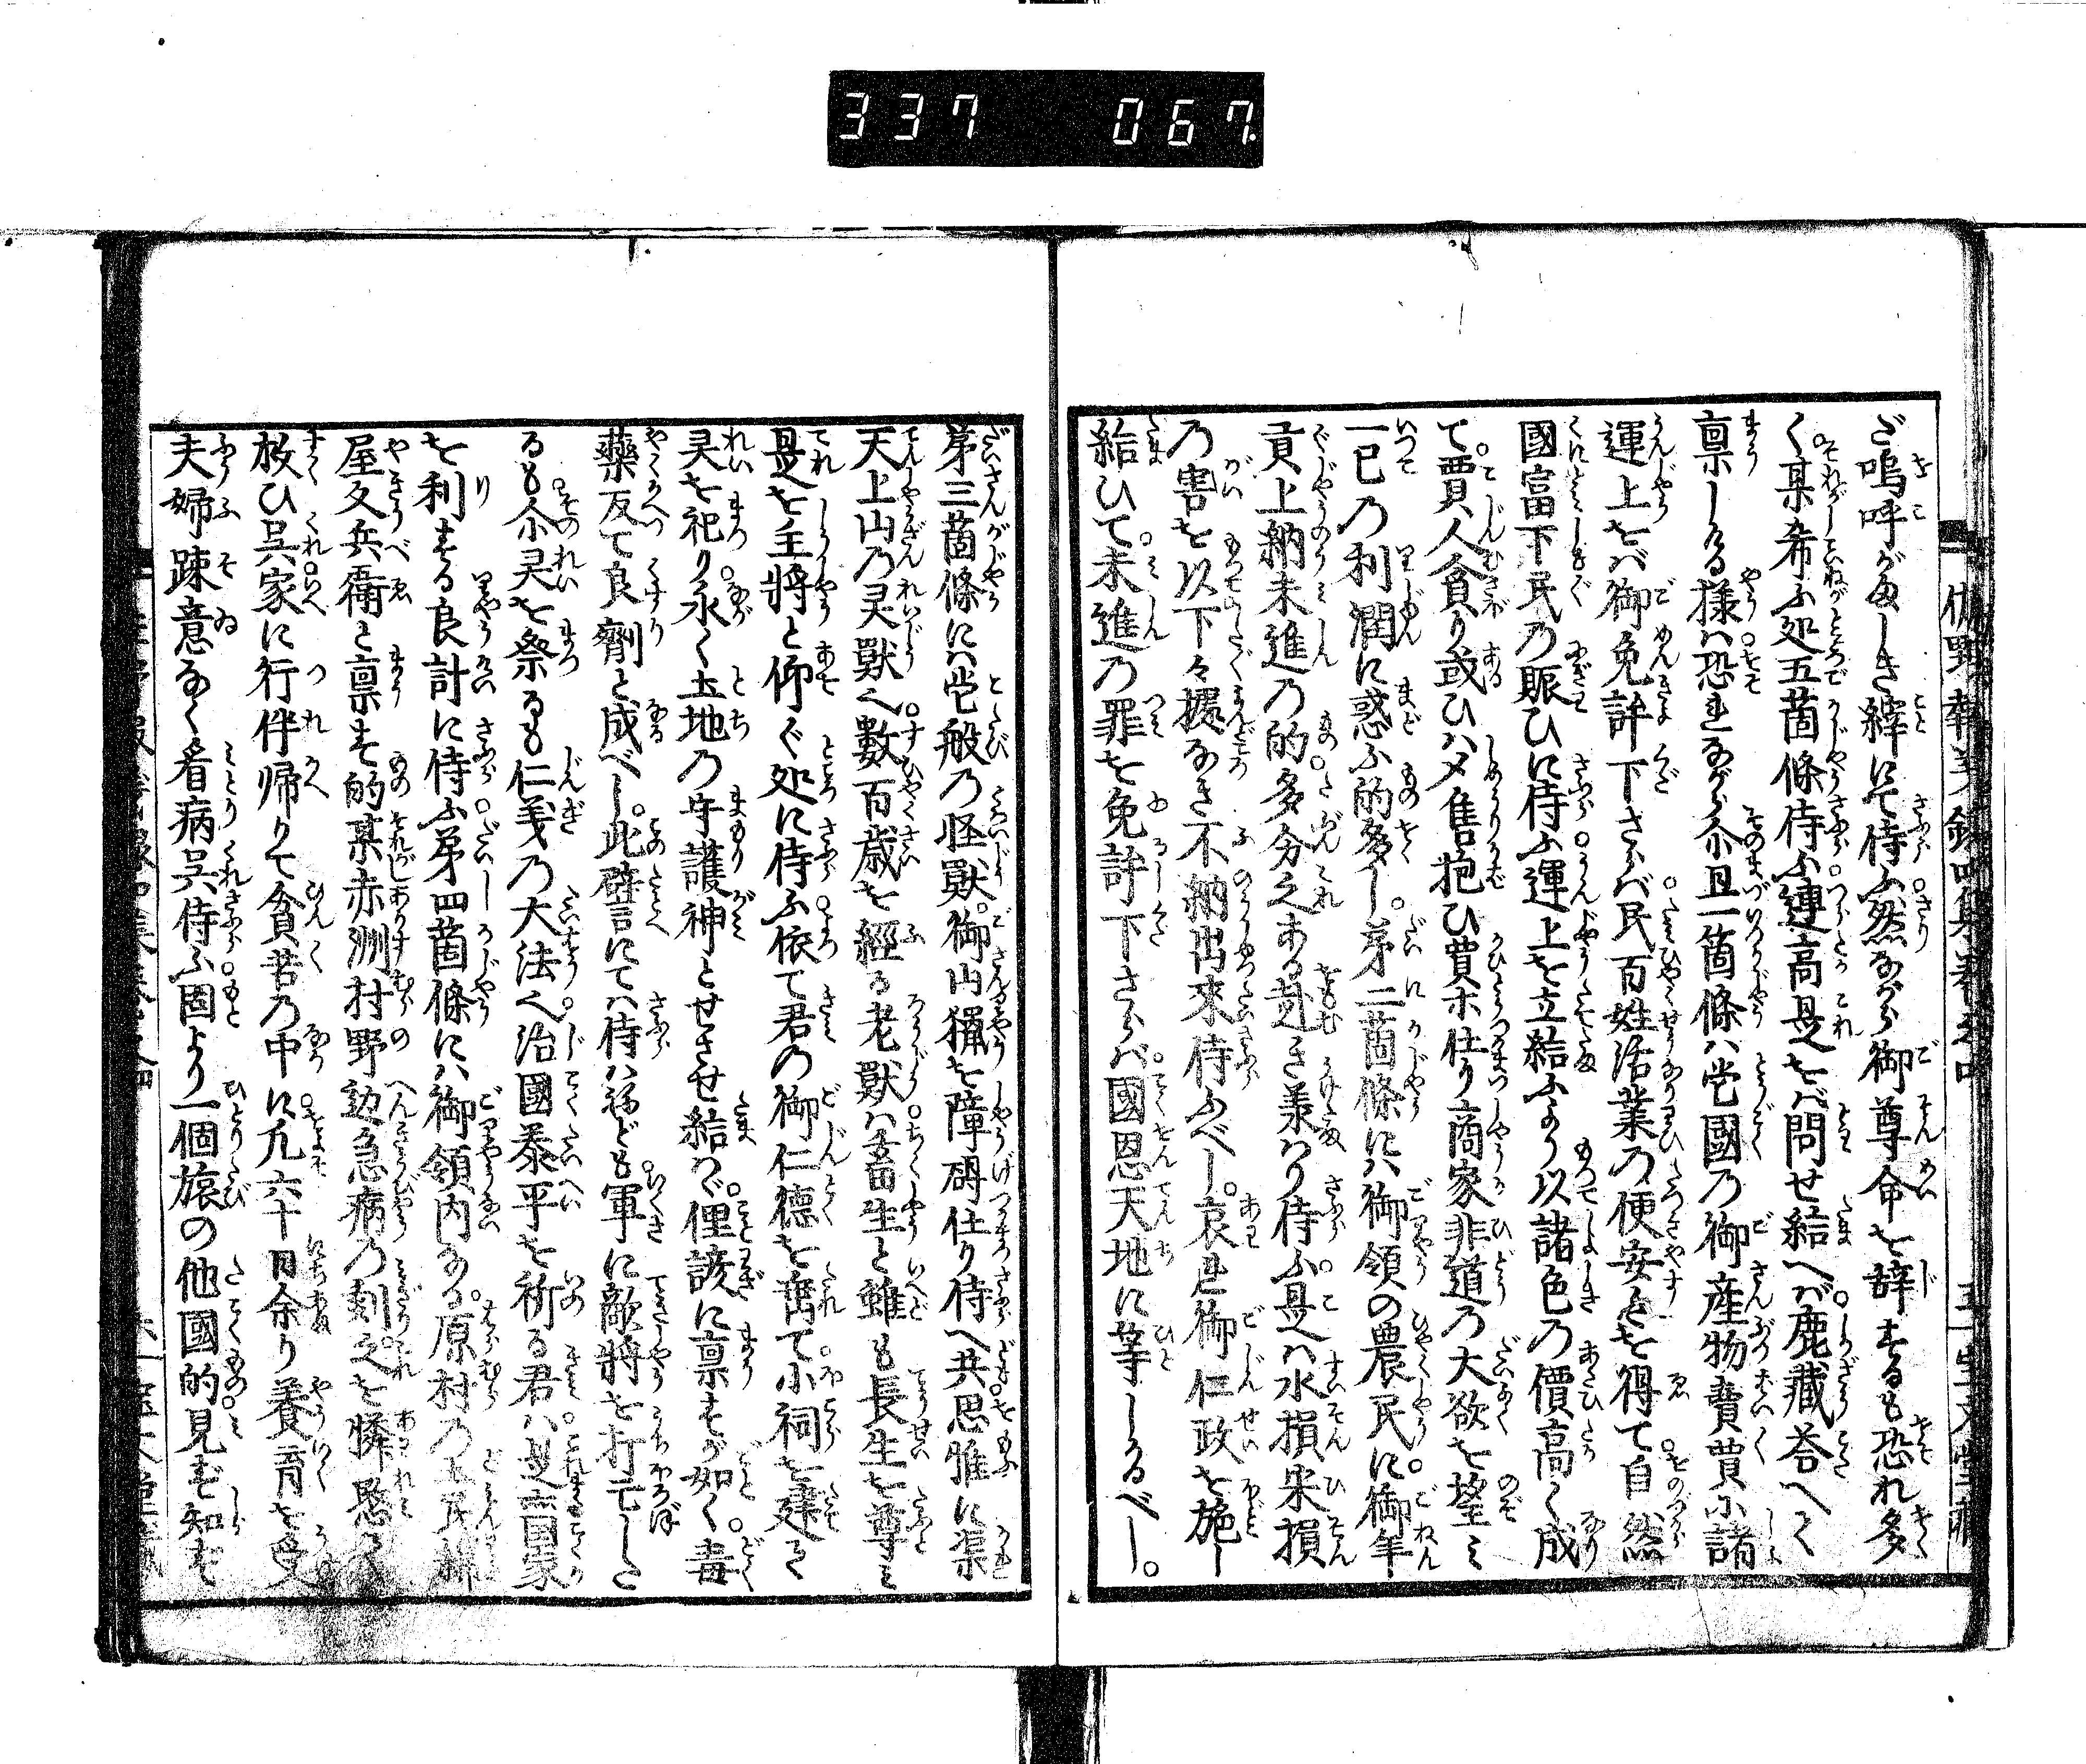 337 067
ざ嗚呼がましき繹にて侍ふ然ながら御尊命を辞するも恐れ多
く某希ふ処五箇條侍ふ連高是をば問せ給へば鹿藏荅へく
禀しける様は恐れながら尒且一箇條は當國の御産物賣買尓諸
運上をば御免許下さらば民百姓活業の便安きを得て自然
國富下民の賑ひに侍ふ運上を立給ふより以諸色の價高く成
て賈人貪り或ひは〆售抱ひ費ホ仕り商家非道の大欲を望み
一已の利潤に惑ふ的多し第二箇條には御領の農民に御年
貢上納未進の的多分之ある趣き羕はり侍ふ是は水損米損
の害を以下々據なき不納出來侍ふべし哀れ御仁政を施し
給ひて未進の罪を免許下さらば國恩天地に等しかるべし。
第三箇條には當般の怪獸御山獵を障碍仕り侍へ共思惟に渠
天上山の灵獸也數百歳を經る老獸は畜生と雖も長生を尊み
是を主將と仰ぐ処に侍ふ依て君の御仁德を齎て小祠を建て
灵を祀り永く土地の守護神とせさせ給はゞ俚諺に禀すが如く毒
藥反て良劑と成べし此譬にては侍はねども軍に敵將を打亡した
るも尒灵を祭るも仁义の大法也治國泰平を祈る君は是國家
を利する良計に侍ふ第四箇條には御領内なる原村の土民
屋久兵衛と禀す的某赤洲村野边急病の刻之を憐愍て
救ひ吴家に行伴帰りて貪苦の中に凢六十日余り養育を受
夫婦疎意なく看病吴侍ふ固より一個旅の他國的見ず知ず